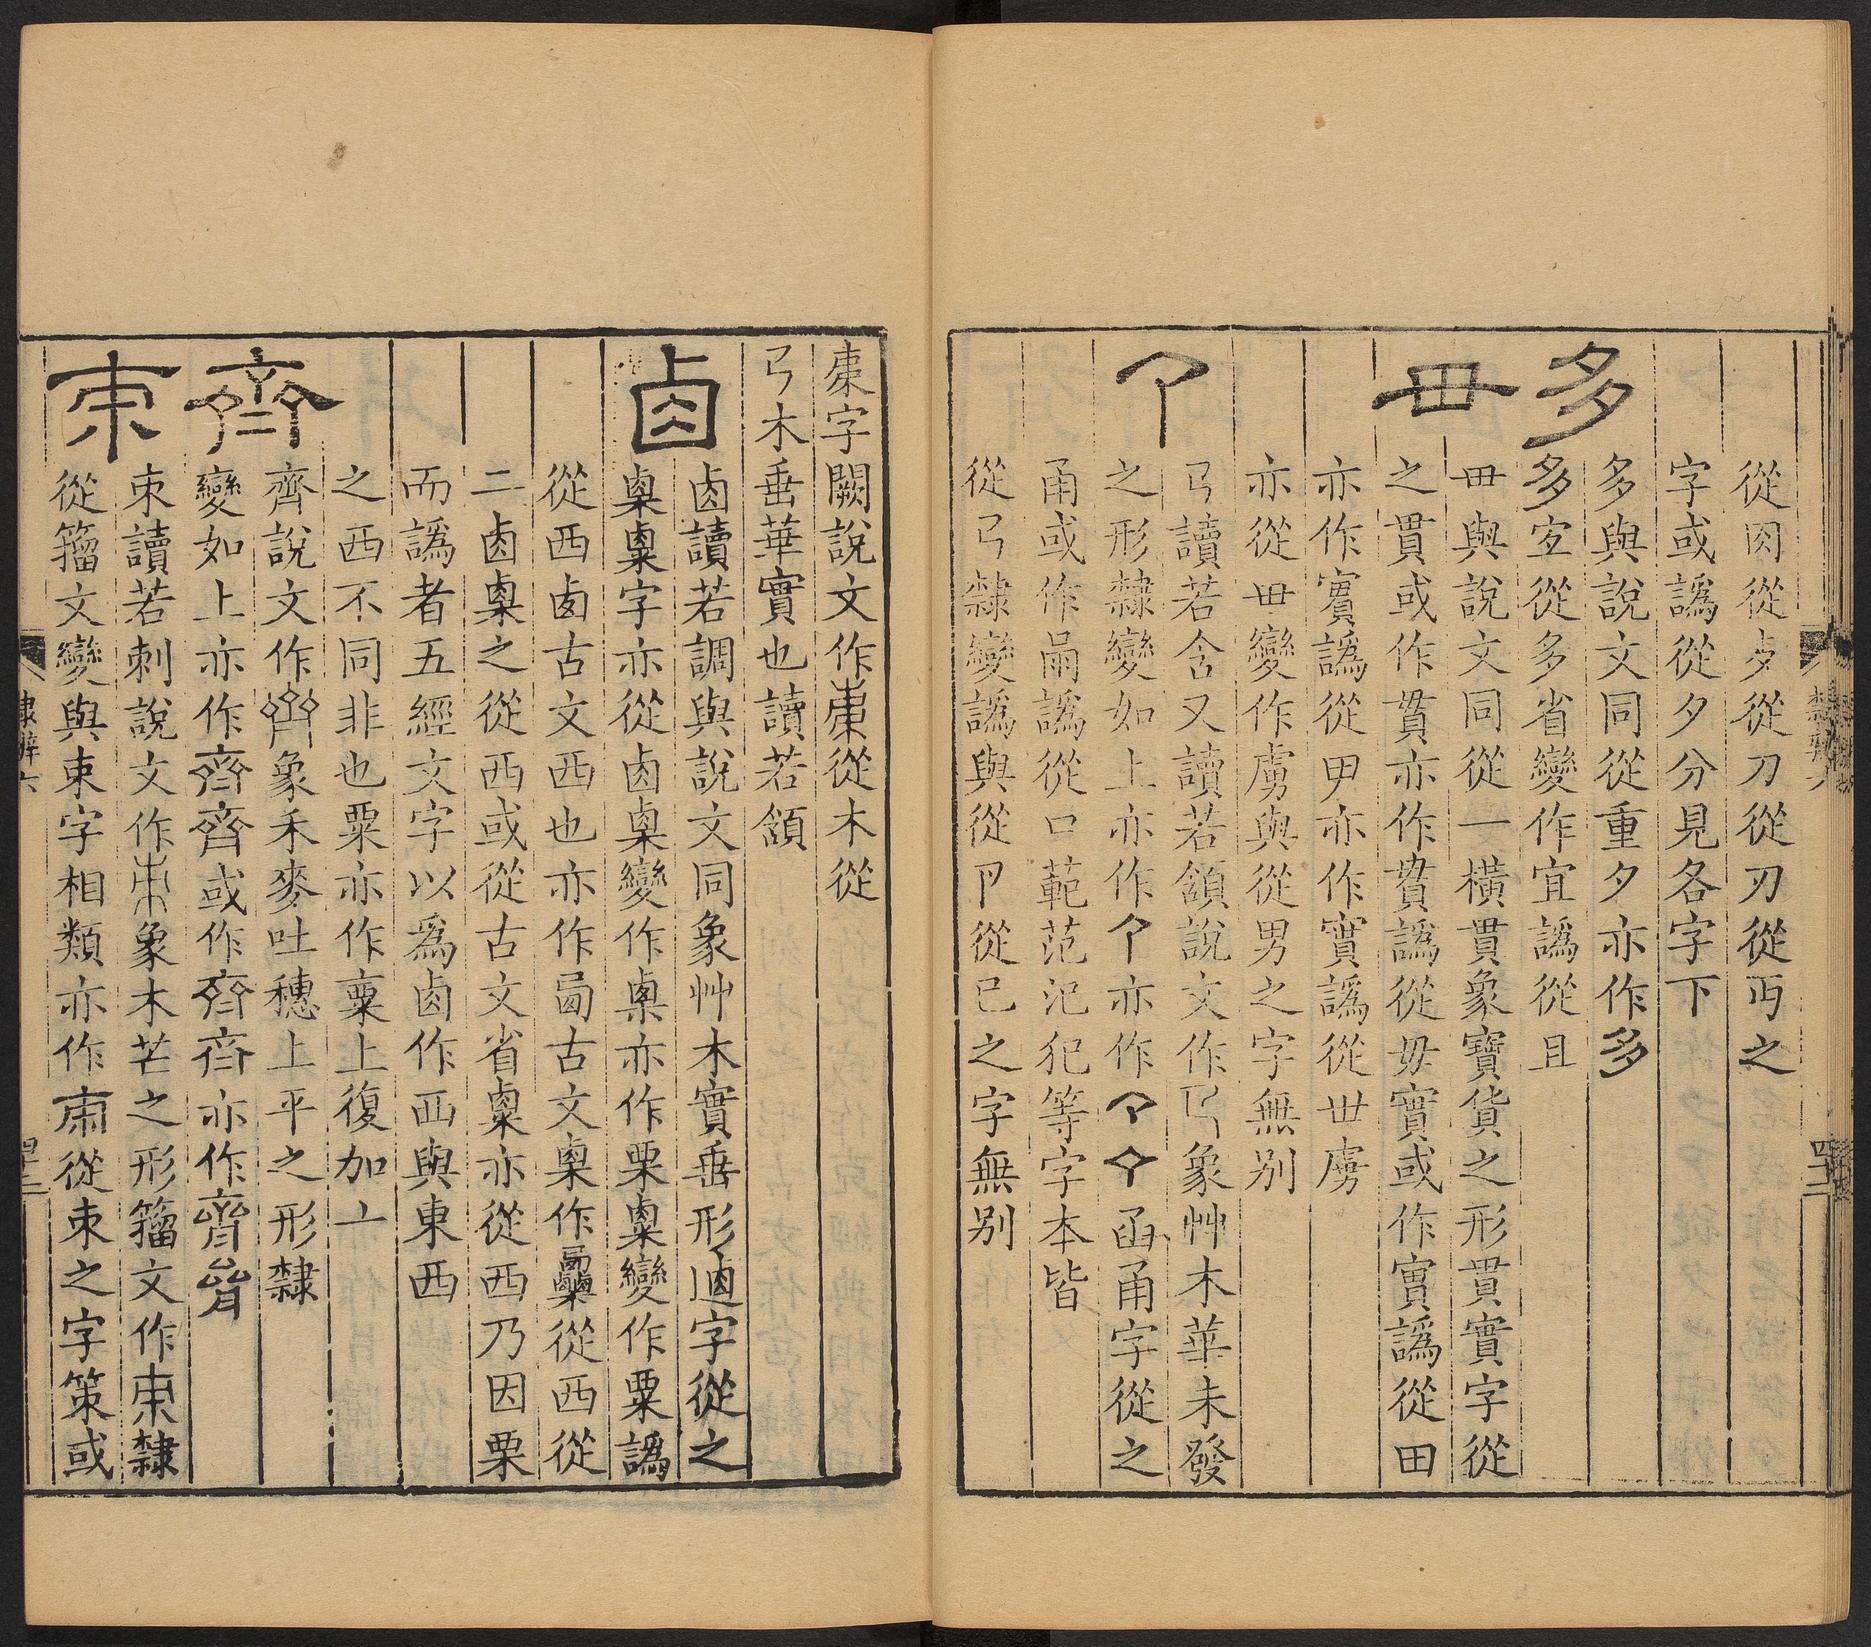 從肉從歺從刀從刃從丏之
字或譌從夕分見各字下
多
多與說文同從重夕亦作多
多宐從多省變作宜譌從且
毌
毌與說文同從一橫貫象寶貨之形貫實字從
之貫或作貫亦作貫譌從毋實或作實譌從田
亦作實譌從甲亦作實譌從丗虜
亦從毌變作虜與從男之字無别
讀若含又讀若頷說文作𢎘象艸木華未發
之形隸變如上亦作亦作函甬字從之
甬或作譌從口範范氾犯等字本皆
從𢎘隸變譌與從卪從已之字無别
隸辨六
四十二
字闕說文作從木從
𢎘木垂華實也讀若頷
卤
卤讀若調與說文同象艸木實垂形逌字從之
㮚字亦從卤㮚變作亦作栗變作粟譌
從西卤古文西也亦作古文㮚作從西從
二卤㮚之從西或從古文省亦從西乃因栗
而譌者五經文字以爲卤作與東西
之西不同非也粟亦作上復加亠
齊
齊說文作象禾麥吐穗上平之形隸
變如上亦作齊齊或作亦作齊
朿
朿讀若刺說文作朿象木芒之形籀文作隸
從籀文變與束字相類亦作從朿之字策或
隸辨六
四十三